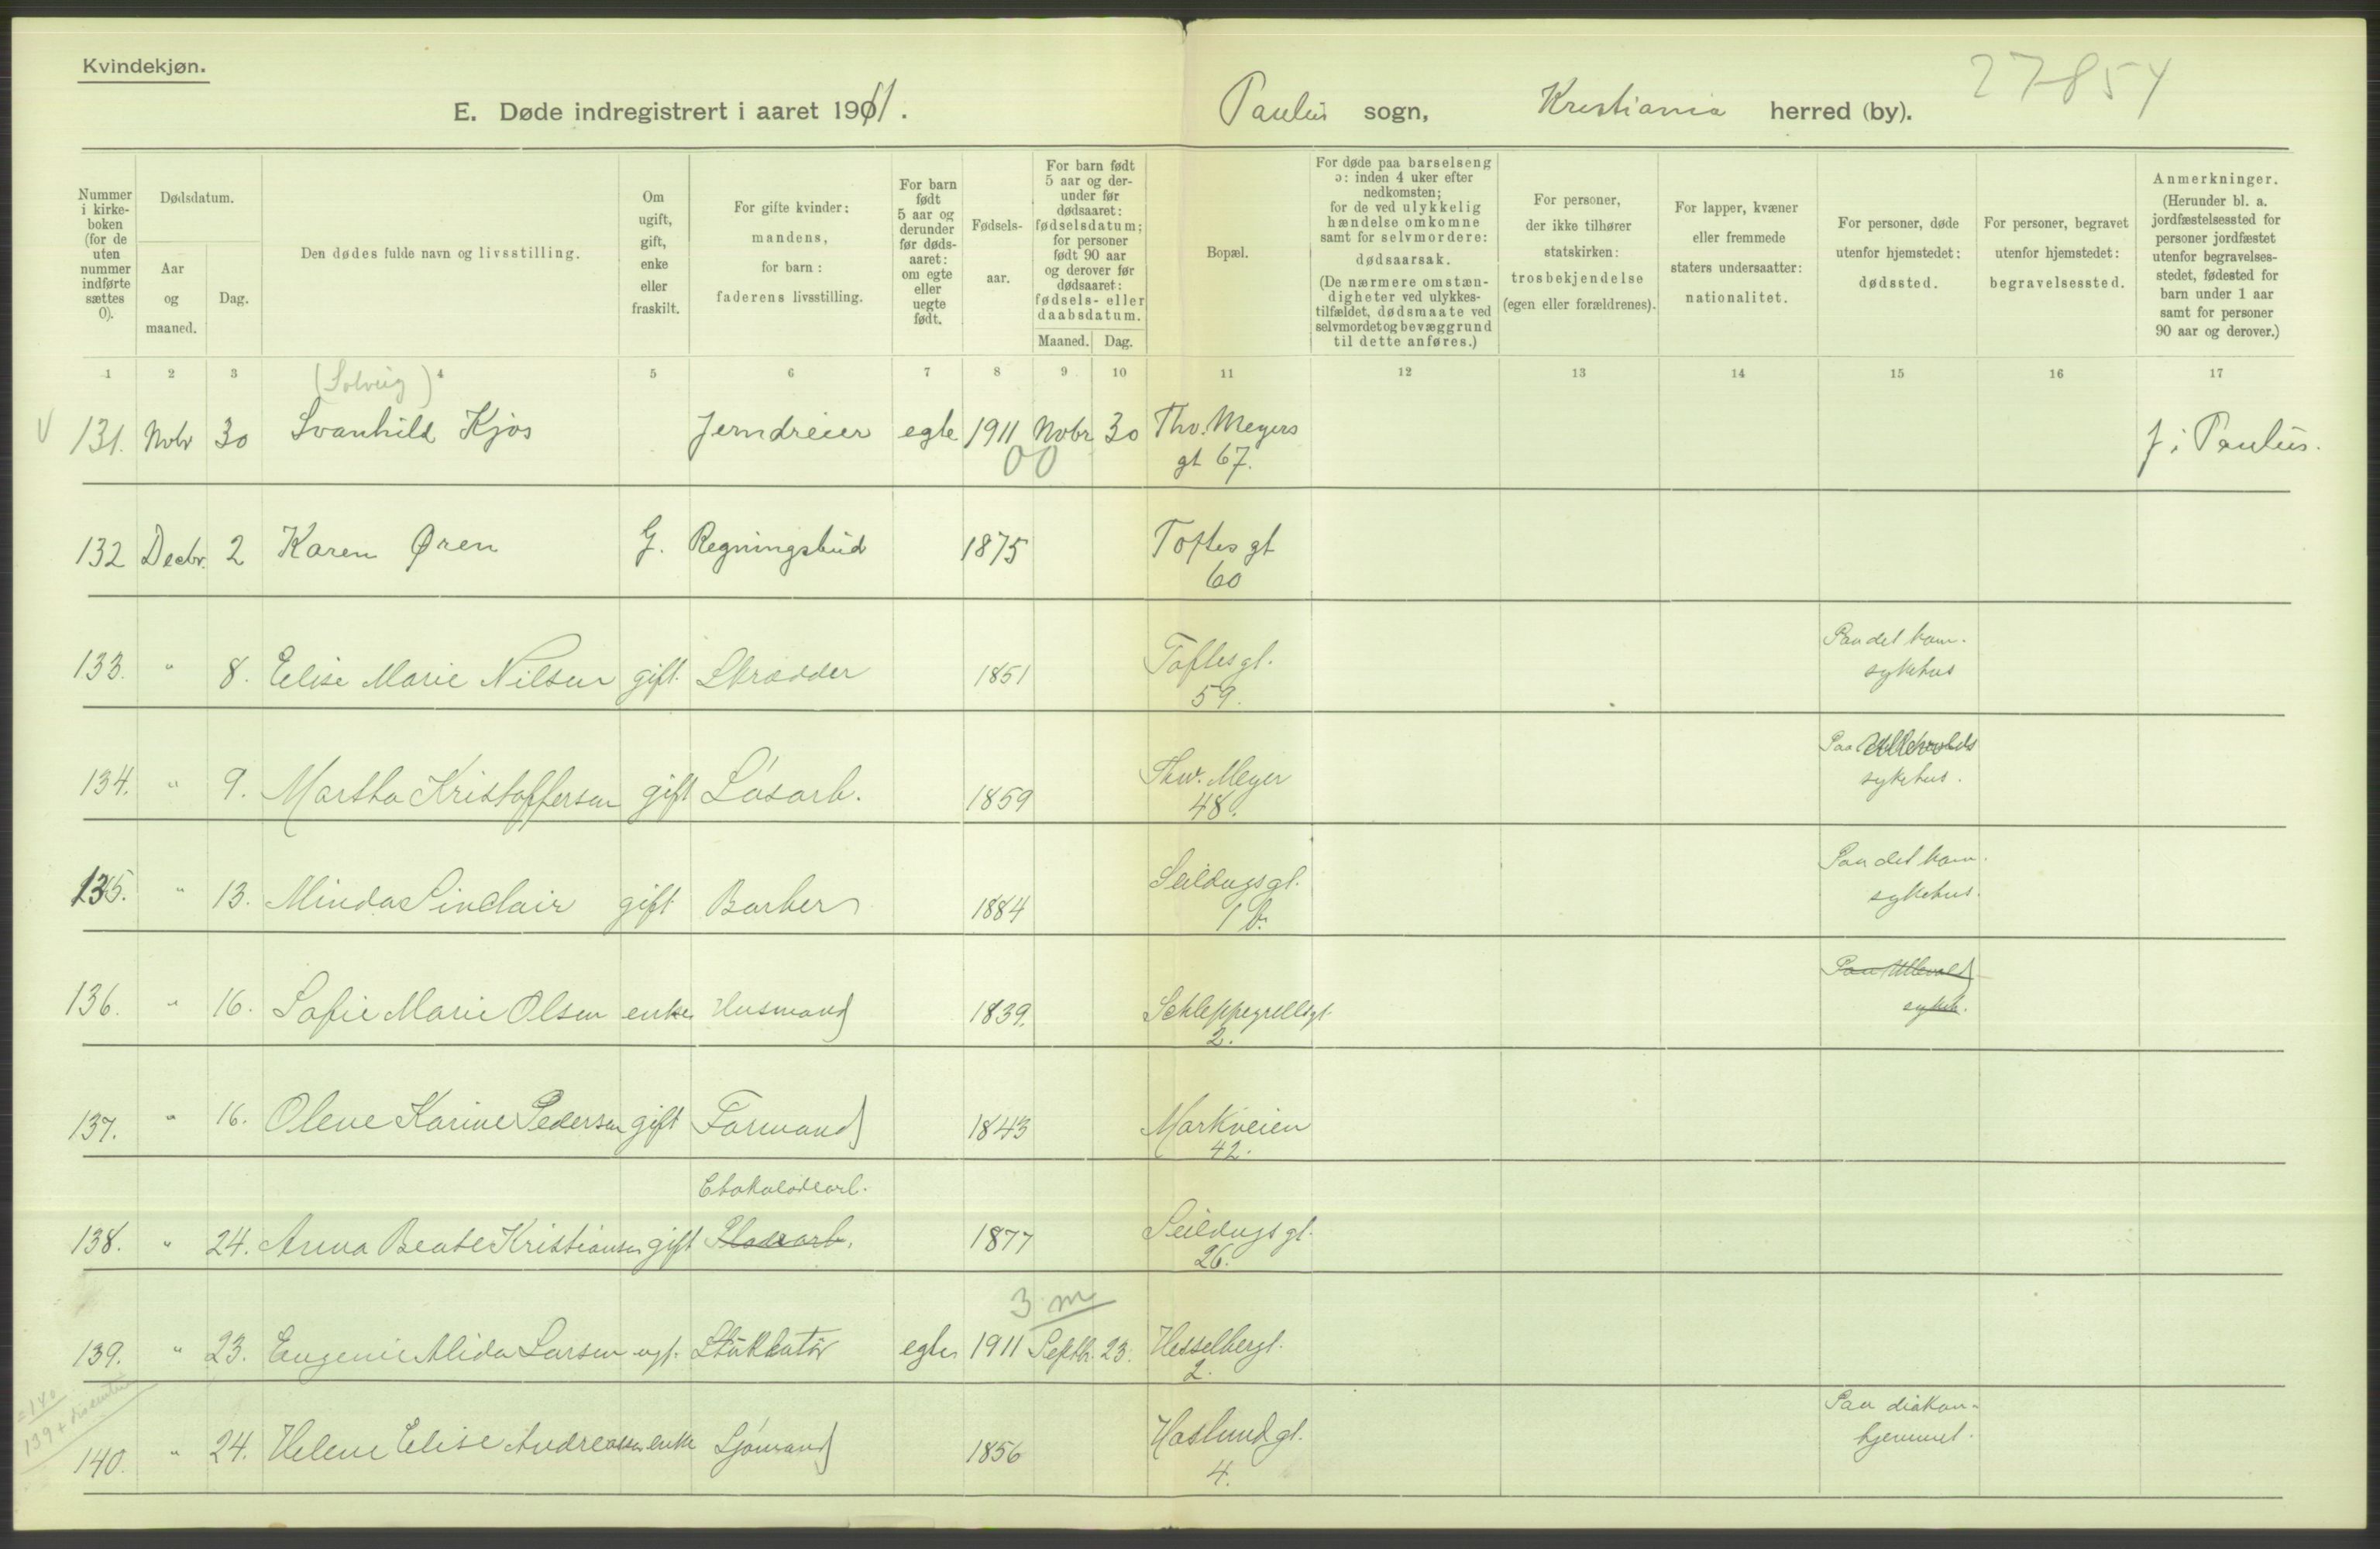 Kvindekjøn.
27854
E. Døde indregistrert i aaret 1911.
Paulus sogn, Kristiania herred (by).
Nummer i kirke-boken (for de uten nummer indførte sættes 0).
Dødsdatum.
Aar og maaned.
Dag.
Den dødes fulde navn og livsstilling.
Om ugift, gift, enke eller fraskilt.
For gifte kvinder: mandens, for barn: faderens livsstilling.
For barn født 5 aar og derunder før døds-aaret: om egte eller uegte født.
Fødsels-aar.
For barn født 5 aar og der-under før dødsaaret: fødselsdatum; for personer født 90 aar og derover før dødsaaret: fødsels- eller daabsdatum.
Maaned. Dag.
Bopæl.
For døde paa barselseng ɔ: inden 4 uker efter nedkomsten; for de ved ulykkelig hændelse omkomne samt for selvmordere: dødsaarsak. (De nærmere omstæn-digheter ved ulykkes-tilfældet, dødsmaate ved selvmord et og bevæggrund til dette anføres.)
For personer, der ikke tilhører statskirken: trosbekjendelse (egen eller forældrenes).
For lapper, kvæner eller fremmede staters undersaatter: nationalitet.
For personer, døde utenfor hjemstedet: dødssted.
For personer, begravet utenfor hjemstedet: begravelsessted.
Anmerkninger. (Herunder bl. a. jordfæstelsessted for personer jordfæstet utenfor begravelses-stedet, fødested for barn under 1 aar samt for personer 90 aar og derover.)
1 2 3 4 5 6 7 8 9 10 11 12 13 14 15 16 17
(Solveig)
131. Novbr 30 Svanhild Kjos Jerndreier egte 1911 Novbr 30 Thv. Meyers f. i Paulus.
00 gt 67.
132 Decbr. 2 Karen Øren G. Regningsbud 1875 Toftes gt
60
Paa det kom.
133. " 8. Elise Marie Nilsen gift. Skrædder 1851 Toftesgt. sykehus
59.
Paa Ullevolds
134. " 9. Martha Kristoffersen gift Løsarb. 1859 Thv. Meyer sykehus.
48.
Paa det kom.
135. " 13. Minda Sinclair gift Barber 1884 Seildugsgt. sykehus.
1 b.
Paa Ullevold
136. " 16. Sofie Marie Olsen enke Husmand 1839. Schleppegrellsgt. sykeh.
2.
137. " 16. Olene Karine Pedersen gift Formand 1843 Markveien
42.
Chokoladearb.
138. " 24. Anna Beate Kristiansen gift 1877 Seildugsgt.
26.
3 m
139. " 23. Eugenie Alida Larsen ugt. Stukkatør egte 1911 Septbr. 23. Hesselbergt.
2.
=140
139 + dissenter
Paa diakon-
140. " 24. Helene Elise Andreassen enke Sjømand 1856 Haslundgt. hjemmet.
4.